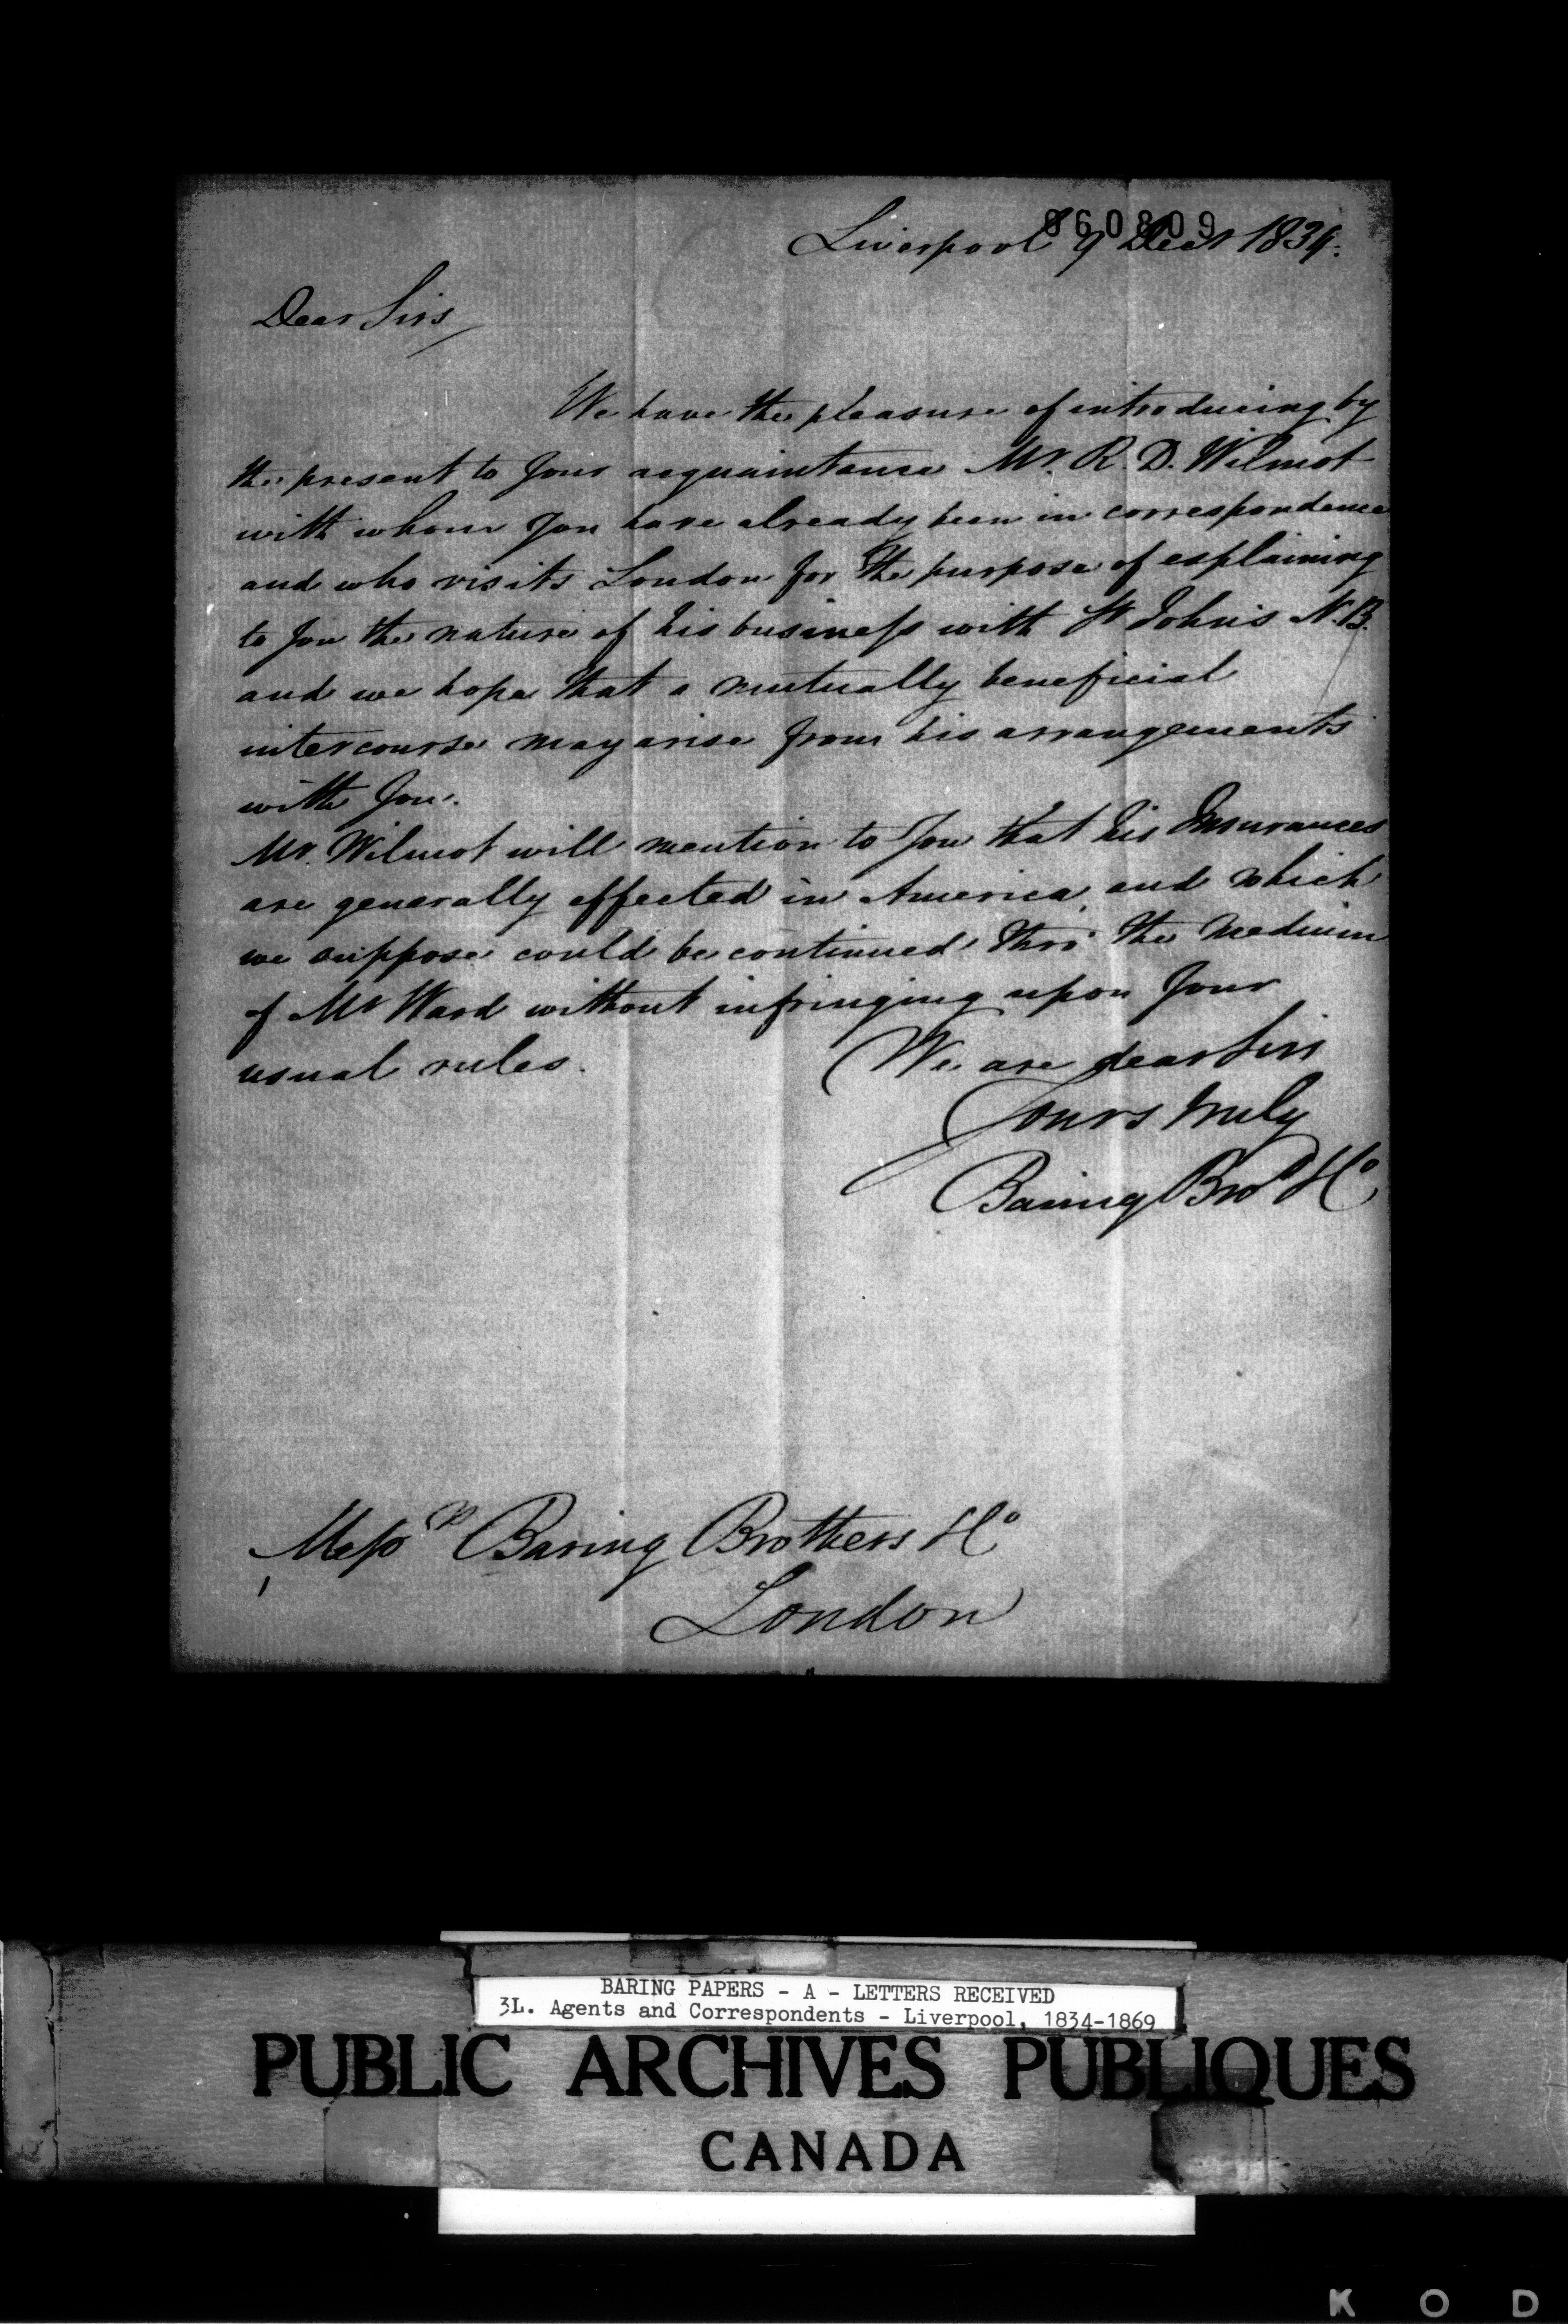 060809
Liverpool 9 Decr 1834.
Dear Sirs
We have the pleasure of introducing by
the present to Your acquaintance Mr. R. D. Wilmot
with whom You have already been in correspondence
and who visits London for the purpose of explaining
to You the nature of his business with St John's N.B.
and we hope that a mutually beneficial
intercourse may arise from his arrangements
with You.
Mr. Wilmot will mention to You that his Insurances
are generally effected in America, and which
we suppose could be continued thro' the medium
of Mr Ward without infringing upon Your
usual rules.
We are dear Sirs
Yours truly
Baring Bros & Co
Messrs Baring Brothers & Co
London
BARING PAPERS - A - LETTERS RECEIVED
3L. Agents and Correspondents - Liverpool, 1834-1869
PUBLIC ARCHIVES PUBLIQUES
CANADA
K O D